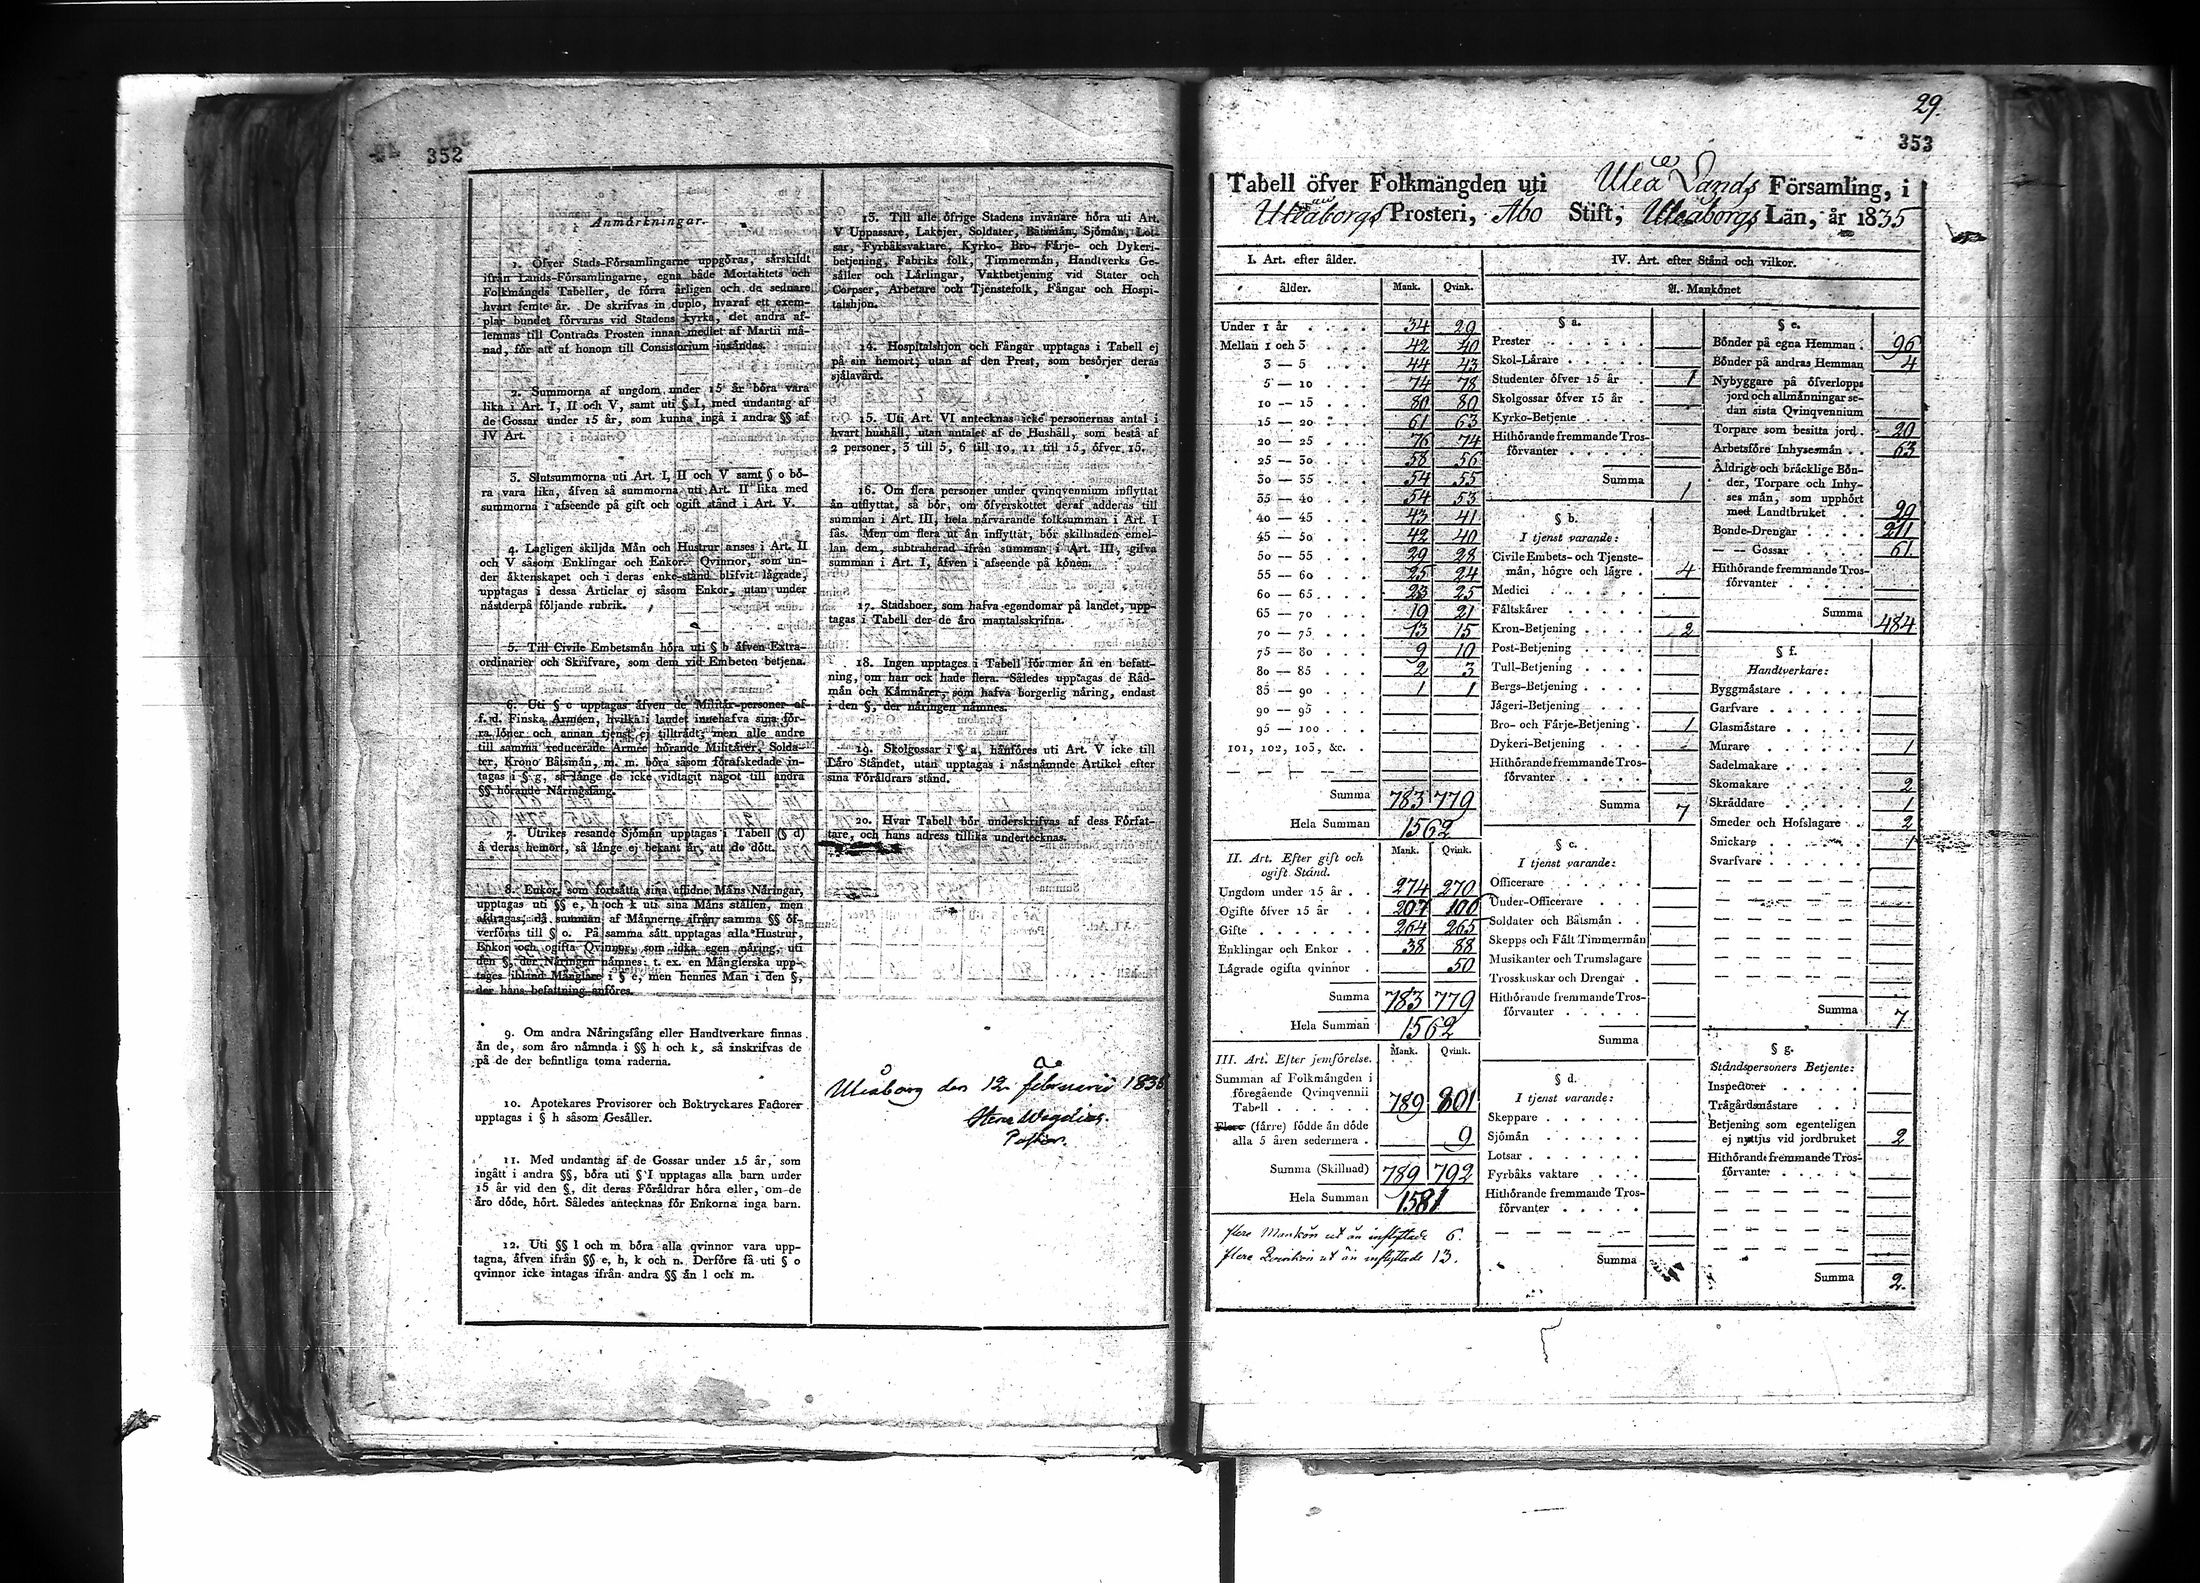 352
Anmärkningar.
1. Öfver Stads-Församlingarne uppgöras, särskildt
ifrån Lands-Församlingarne, egna både Mortalitets och
Folkmängds Tabeller, de förra årligen och de sednare
hvart femte år. De skrifvas in duplo, hvaraf ett exem-
plar bundet förvaras vid Stadens kyrka, det andra af-
lemnas till Contracts Prosten innan medlet af Martii må-
nad, för att af honom till Consistorium insändas.
2. Summorna af ungdom under 15 år böra vara
lika i Art. I, II och V, samt uti § I, med undantag af
de Gossar under 15 år, som kunna ingå i andra §§ af
IV Art.
3. Slutsummorna uti Art. I, II och V samt § o bö-
ra vara lika, äfven så summorna uti Art. II lika med
summorna i afseende på gift och ogift stånd i Art. V.
4. Lagligen skiljda Män och Hustrur anses i Art. II
och V såsom Enklingar och Enkor. Qvinnor, som un-
der äktenskapet och i deras enke-stånd blifvit lägrade,
upptagas i dessa Articlar ej såsom Enkor, utan under
nästderpå följande rubrik.
5. Till Civile Embetsmän höra uti § b äfven Extra-
ordinarier och Skrifvare, som dem vid Embeten betjena.
6. Uti § c upptagas äfven de Militär-personer af
f. d. Finska Arméen, hvilka i landet innehafva sina för-
ra löner och annan tjenst ej tillträdt; men alle andre
till samma reducerade Armée hörande Militärer, Solda-
ter, Krono Båtsmän, m. m. böra såsom förafskedade in-
tagas i § g, så länge de icke vidtagit något till andra
§§ hörande Näringsfång.
7. Utrikes resande Sjömän upptagas i Tabell (§ d)
å deras hemort, så länge ej bekant är, att de dött.
8. Enkor, som fortsätta sina aflidne Mäns Näringar,
upptagas uti §§ e, h och k uti sina Mäns ställen, men
afdragas, då summan af Männerne ifrån samma §§ öf-
verföras till § o. På samma sätt upptagas alla Hustrur,
Enkor och ogifta Qvinnor, som idka egen näring, uti
den §, der Näringen nämnes: t. ex. en Månglerska upp-
tages ibland Månglare i § e, men hennes Man i den §,
der hans befattning anföres.
9. Om andra Näringsfång eller Handtverkare finnas
än de, som äro nämnda i §§ h och k, så inskrifvas de
på de der befintliga toma raderna.
10. Apotekares Provisorer och Boktryckares Factorer
upptagas i § h såsom Gesäller.
11. Med undantag af de Gossar under 15 år, som
ingått i andra §§, böra uti § I upptagas alla barn under
15 år vid den §, dit deras Föräldrar höra eller, om de
äro döde, hört. Således antecknas för Enkorna inga barn.
12. Uti §§ l och m böra alla qvinnor vara upp-
tagna, äfven ifrån §§ e, h, k och n. Derföre få uti § o
qvinnor icke intagas ifrån andra §§ än l och m.
13. Till alle öfrige Stadens invånare höra uti Art.
V Uppassare, Lakejer, Soldater, Båtsmän, Sjömän, Lot-
sar, Fyrbåksvaktare, Kyrko- Bro- Färje- och Dykeri-
betjening, Fabriks folk, Timmermän, Handtverks Ge-
säller och Lärlingar, Vaktbetjening vid Stater och
Corpser, Arbetare och Tjenstefolk, Fångar och Hospi-
talshjon.
14. Hospitalshjon och Fångar upptagas i Tabell ej
på sin hemort, utan af den Prest, som besörjer deras
själavård.
15. Uti Art. VI antecknas icke personernas antal i
hvart hushåll, utan antalet af de Hushåll, som bestå af
2 personer, 3 till 5, 6 till 10, 11 till 15, öfver 15.
16. Om flera personer under qvinqvennium inflyttat
än utflyttat, så bör, om öfverskottet deraf adderas till
summan i Art. III, hela närvarande folksumman i Art. I
fås. Men om flera ut än inflyttat, bör skillnaden emel-
lan dem, subtraherad ifrån summan i Art. III, gifva
summan i Art. I, äfven i afseende på könen.
17. Stadsboer, som hafva egendomar på landet, upp-
tagas i Tabell der de äro mantalsskrifna.
18. Ingen upptages i Tabell för mer än en befatt-
ning, om han ock hade flera. Således upptagas de Råd-
män och Kämnärer, som hafva borgerlig näring, endast
i den §, der näringen nämnes.
19. Skolgossar i § a, hänföres uti Art. V icke till
Läro Ståndet, utan upptagas i nästnämnde Artikel efter
sina Föräldrars stånd.
20. Hvar Tabell bör underskrifvas af dess Förfat-
tare, och hans adress tillika undertecknas.
Uleåborg den 12 februarii 1836
Pastor.
29.
353
Tabell öfver Folkmängden uti Uleå Lands Församling, i
Uleåborgs Prosteri, Åbo Stift, Uleåborgs Län, år 1835
I. Art. efter ålder.
ålder. Mank. Qvink.
Under 1 år 34 29
Mellan 1 och 3 42 40
3 — 5 44 43
5 — 10 74 78
10 — 15 80 80
15 — 20 61 63
20 — 25 76 74
25 — 30 58 56
30 — 35 54 55
35 — 40 54 53
40 — 45 43 41
45 — 50 42 40
50 — 55 29 28
55 — 60 25 24
60 — 65 23 25
65 — 70 19 21
70 — 75 13 15
75 — 80 9 10
80 — 85 2 3
85 — 90 1 1
90 — 95
95 — 100
101, 102, 103, &c.
Summa 783 779
Hela Summan 1562
II. Art. Efter gift och
ogift Stånd. Mank. Qvink.
Ungdom under 15 år 274 270
Ogifte öfver 15 år 207 106
Gifte 264 265
Enklingar och Enkor 38 88
Lägrade ogifta qvinnor 50
Summa 783 779
Hela Summan 1562
III. Art. Efter jemförelse. Mank. Qvink.
Summan af Folkmängden i
föregående Qvinqvennii
Tabell 789 801
Flere (färre) födde än döde
alla 5 åren sedermera 9
Summa (Skillnad) 789 792
Hela Summan 1581
flere Mankön ut än inflyttade 6.
flere Qvinkön ut än inflyttade 13.
IV. Art. efter Stånd och vilkor.
A. Mankönet
§ a.
Prester
Skol-Lärare
Studenter öfver 15 år 1
Skolgossar öfver 15 år
Kyrko-Betjente
Hithörande fremmande Tros-
förvanter
Summa 1
§ b.
I tjenst varande:
Civile Embets- och Tjenste-
män, högre och lägre 4
Medici
Fältskärer
Kron-Betjening 2
Post-Betjening
Tull-Betjening
Bergs-Betjening
Jägeri-Betjening
Bro- och Färje-Betjening 1
Dykeri-Betjening
Hithörande fremmande Tros-
förvanter
Summa 7
§ c.
I tjenst varande:
Officerare
Under-Officerare
Soldater och Båtsmän
Skepps och Fält Timmermän
Musikanter och Trumslagare
Trosskuskar och Drengar
Hithörande fremmande Tros-
förvanter
Summa
§ d.
I tjenst varande:
Skeppare
Sjömän
Lotsar
Fyrbåks vaktare
Hithörande fremmande Tros-
förvanter
Summa
§ e.
Bönder på egna Hemman 96
Bönder på andras Hemman 4
Nybyggare på öfverlopps
jord och allmänningar se-
dan sista Qvinqvennium
Torpare som besitta jord 20
Arbetsföre Inhysesmän 63
Åldrige och bräcklige Bön-
der, Torpare och Inhy-
ses män, som upphört
med Landtbruket 29
Bonde-Drengar 211
— — Gossar 61
Hithörande fremmande Tros-
förvanter
Summa 484
§ f.
Handtverkare:
Byggmästare
Garfvare
Glasmästare
Murare 1
Sadelmakare
Skomakare 2
Skräddare 1
Smeder och Hofslagare 2
Snickare 1
Svarfvare
Summa 7
§ g.
Ståndspersoners Betjente:
Inspectorer
Trägårdsmästare
Betjening som egenteligen
ej nyttjus vid jordbruket 2
Hithörande fremmande Tros-
förvanter
Summa 2.